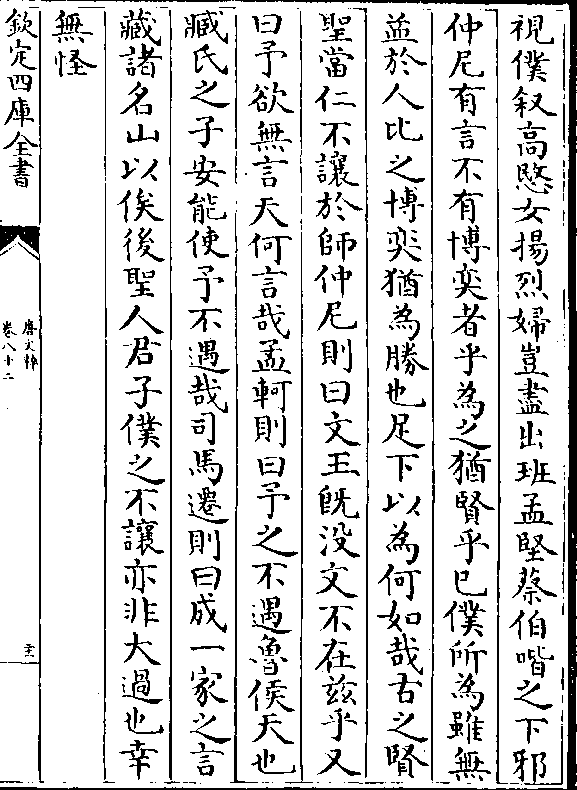 視僕叙高愍女揚烈婦豈盡出班孟堅蔡伯喈之下邪
仲尼有言不有博奕者乎為之猶賢乎已僕所為雖無
益於人比之博奕猶為勝也足下以為何如哉古之賢
聖當仁不讓於師仲尼則曰文王既没文不在兹乎又
曰予欲無言天何言哉孟軻則曰予之不遇魯侯天也
臧氏之子安能使予不遇哉司馬遷則曰成一家之言
藏諸名山以俟後聖人君子僕之不讓亦非大過也幸
無怪
欽定四庫全書
唐文粹
卷八十二